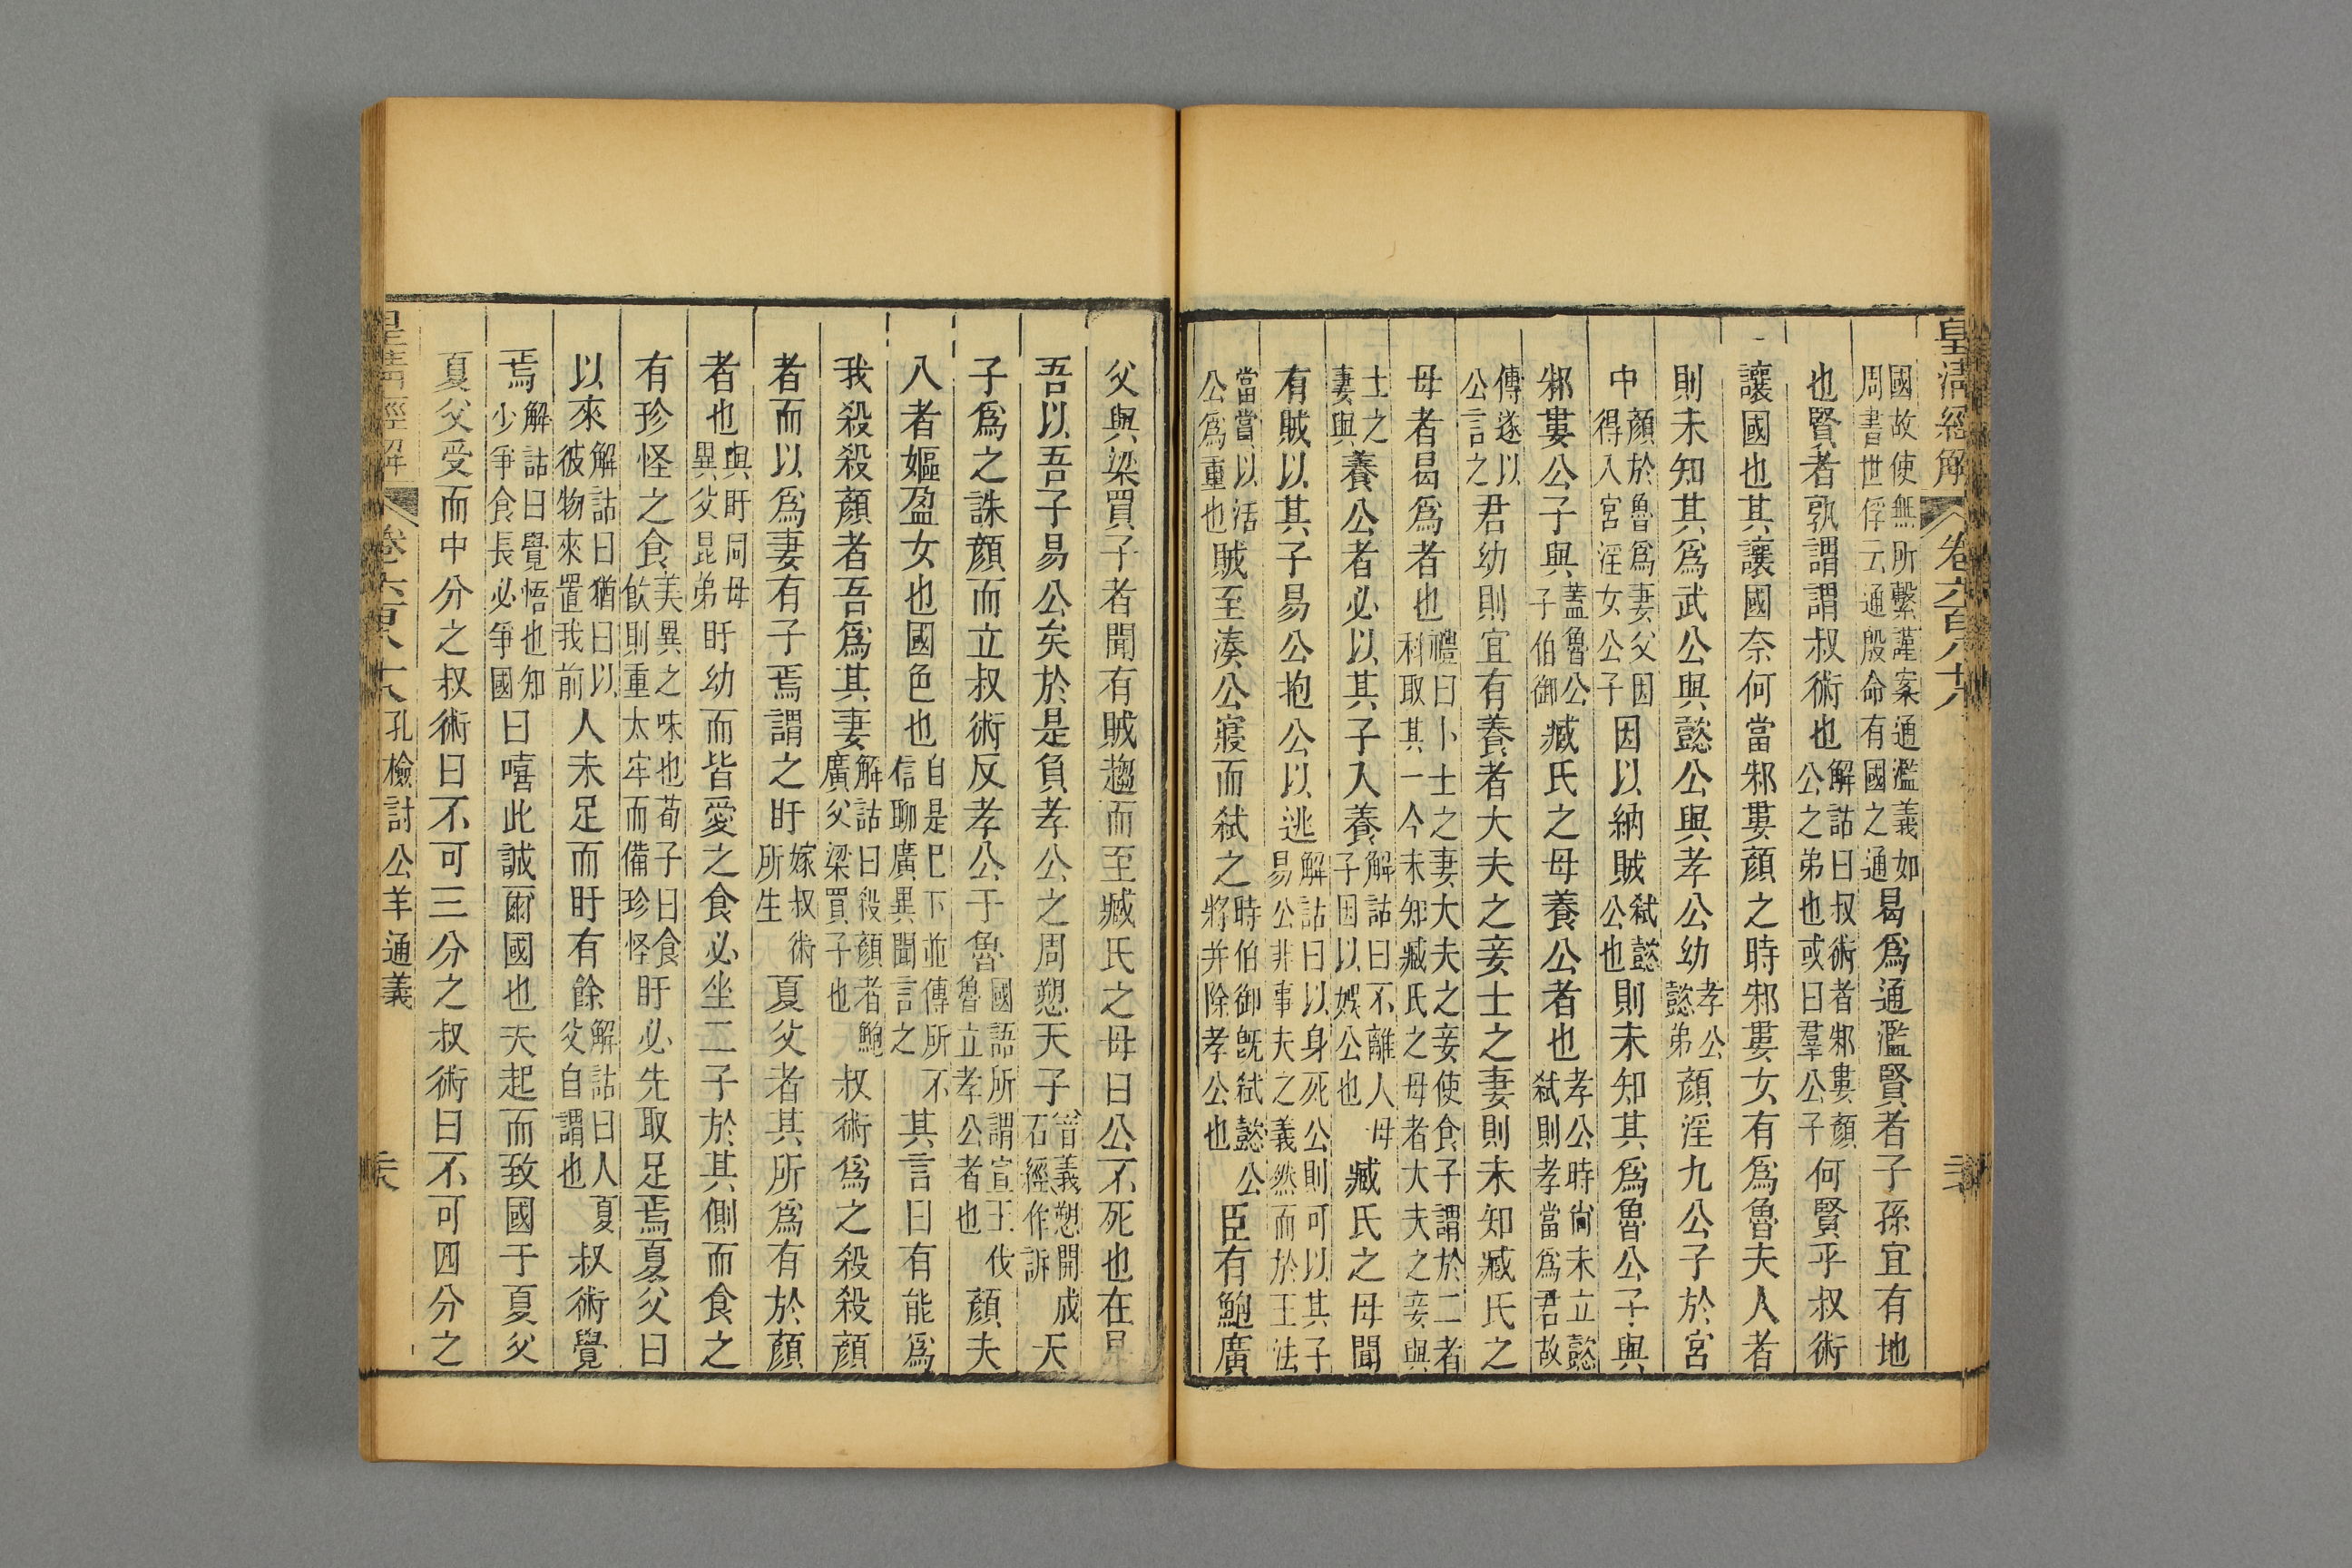 皇清經解 卷六百八十八
國故使無所繫謹案通濫義如周書世俘云通殷命有國之通曷爲通濫賢者子孫宜有地
也賢者孰謂謂叔術也解詁曰叔術者邾婁顏公之弟也或曰羣公子何賢乎叔術
讓國也其讓國奈何當邾婁顏之時邾婁女有爲魯夫人者
則未知其爲武公與懿公與孝公幼孝公懿弟顏淫九公子於宮
中顏於魯爲妻父因得入宮淫女公子因以納賊弒懿公也則未知其爲魯公子與
邾婁公子與蓋魯公子伯御臧氏之母養公者也孝公時尙未立懿弒則孝當爲君故
傳遂以公言之君幼則宜有養者大夫之妾士之妻則未知臧氏之
母者曷爲者也禮曰卜士之妻大夫之妾使食子謂於二者科取其一今未知臧氏之母者大夫之妾與
士之妻與養公者必以其子入養解詁曰不離人母子因以娛公也臧氏之母聞
有賊以其子易公抱公以逃解詁曰以身死公則可以其子易公非事夫之義然而於王法
當賞以活公爲重也賊至湊公寢而弒之時伯御旣弒懿公將并除孝公也臣有鮑廣
父與梁買子者聞有賊趨而至臧氏之母曰公不死也在是
吾以吾子易公矣於是負孝公之周愬天子音義愬開成石經作訴天
子爲之誅顏而立叔術反孝公于魯國語所謂宣王伐魯立孝公者也顏夫
人者嫗盈女也國色也自是已下並傳所不信聊廣異聞言之其言曰有能爲
我殺殺顏者吾爲其妻解詁曰殺顏者鮑廣父梁買子也叔術爲之殺殺顏
者而以爲妻有子焉謂之盱嫁叔術所生夏父者其所爲有於顏
者也與盱同母異父昆弟盱幼而皆愛之食必坐二子於其側而食之
有珍怪之食美異之味也荀子曰食飮則重太牢而備珍怪盱必先取足焉夏父曰
以來解詁曰猶曰以彼物來置我前人未足而盱有餘解詁曰人夏父自謂也叔術覺
焉解詁曰覺悟也知少爭食長必爭國曰嘻此誠爾國也夫起而致國于夏父
夏父受而中分之叔術曰不可三分之叔術曰不可四分之
皇清經解 卷六百八十八 孔檢討公羊通義